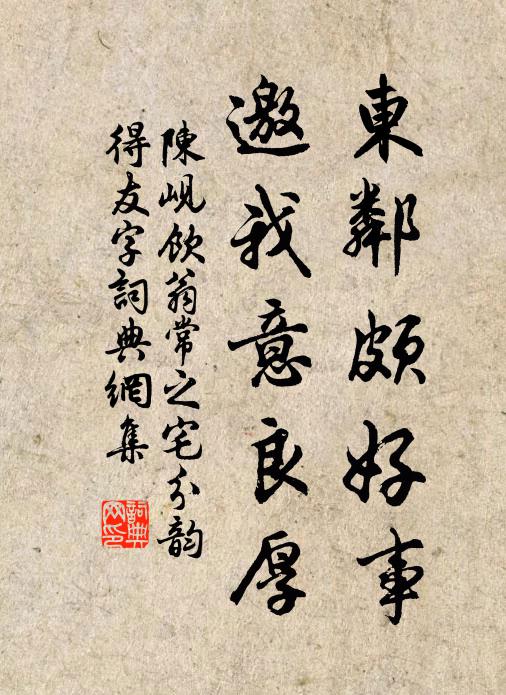 東鄰頗好事
邀我意良厚
陳峴飲翁常之宅分韵
得友字詞典網集
詞典
网印